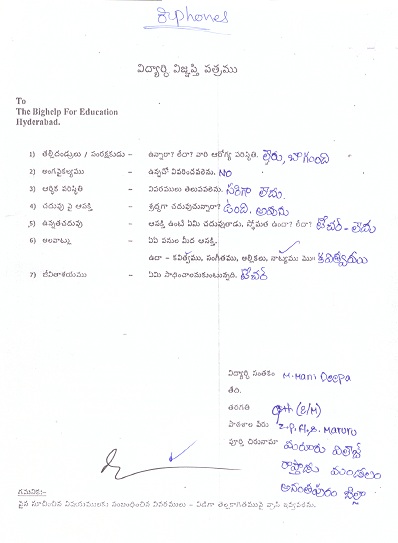 phones
విద్యార్థి విజ్ఞప్తి పత్రము
To
The Bighelp For Education
Hyderabad.
1) తల్లిదండ్రులు / సంరక్షకుడు - ఉన్నారా? లేదా? వారి ఆరోగ్య పరిస్థితి. లేరు, బాగుంది
2) అంగవైకల్యము - ఉన్నచో వివరించవలెను. NO
3) ఆర్థిక పరిస్థితి - వివరములు తెలుపవలెను. సరిగా లేదు.
4) చదువు పై ఆసక్తి - శ్రద్ధగా చదువుచున్నారా? ఉంది. అవును
5) ఉన్నతచదువు - ఆసక్తి ఉంటే ఏమి చదువుతాడు. స్తోమత ఉందా? లేదా? టీచర్ - లేదు
6) అలవాట్లు - ఏఏ పనుల మీద ఆసక్తి.
ఉదా - కవిత్వము, సంగీతము, అల్లికలు, నాట్యము మొ॥
7) జీవితాశయము - ఏమి సాధించాలనుకుంటున్నది. టీచర్
విద్యార్థి సంతకం M. Mani Deepa
తేది.
తరగతి 9th (E/M)
పాఠశాల పేరు Z.P.H.S. Maruru
పూర్తి చిరునామా మరూరు విలేజ్
రాప్తాడు మండలం
అనంతపురం జిల్లా
గమనిక:-
పైన సూచించిన విషయములకు సంబంధించిన వివరములు - విడిగా తెల్లకాగితముపై వ్రాసి ఇవ్వవలెను.